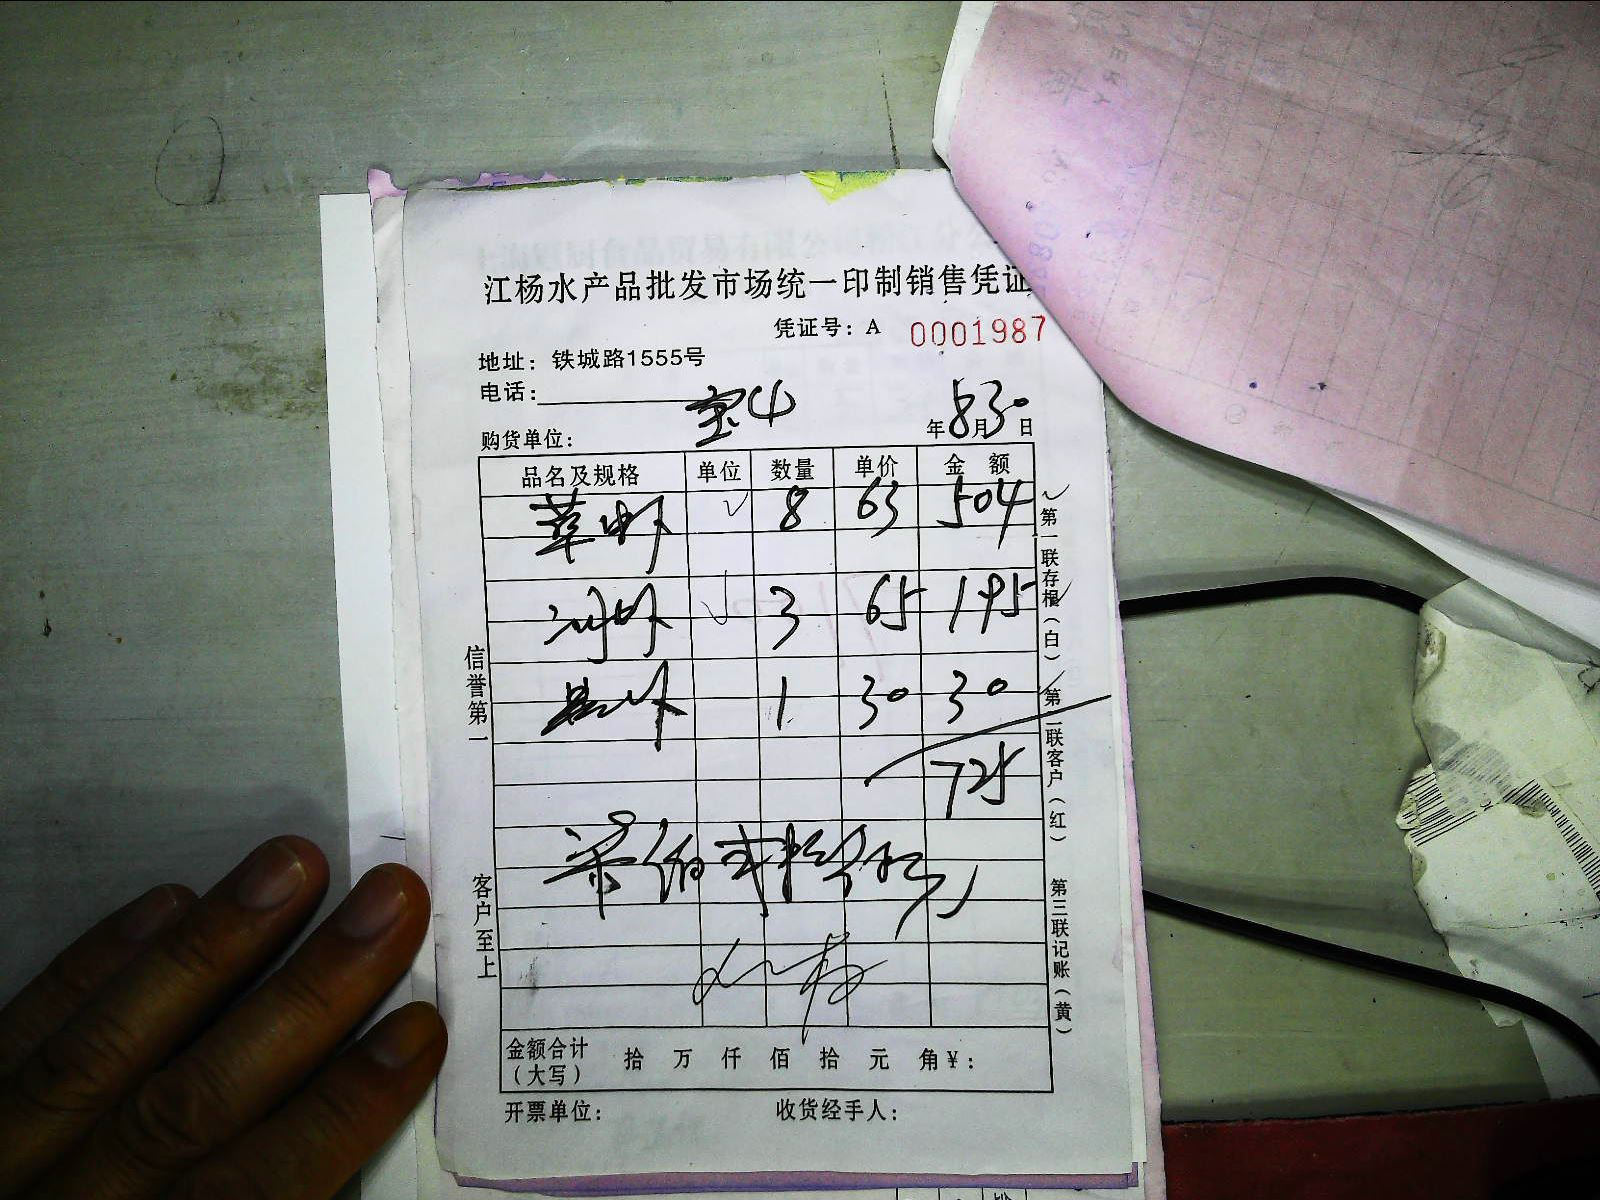 江杨水产品批发市场统一印制销售凭证
凭证号：A 0001987
地址：铁城路1555号
电话：
购货单位： 宝山 年8月30日
品名及规格 单位 数量 单价 金 额
草虾 8 63 504
河虾 3 65 195
虾 1 30 30
725
柒佰弍拾伍元
金额合计（大写） 拾 万 仟 佰 拾 元 角 ￥：
开票单位： 收货经手人：
信誉第一
客户至上
第一联存根（白） 第二联客户（红） 第三联记账（黄）